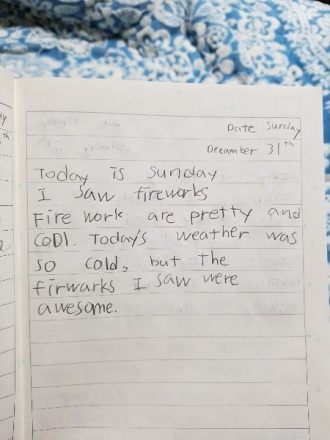 Date Sunday
December 31th
Today is Sunday
I saw fireworks
Fire work are pretty and
COOl. Today's weather was
so cold, but the
firwarks I saw were
awesome.